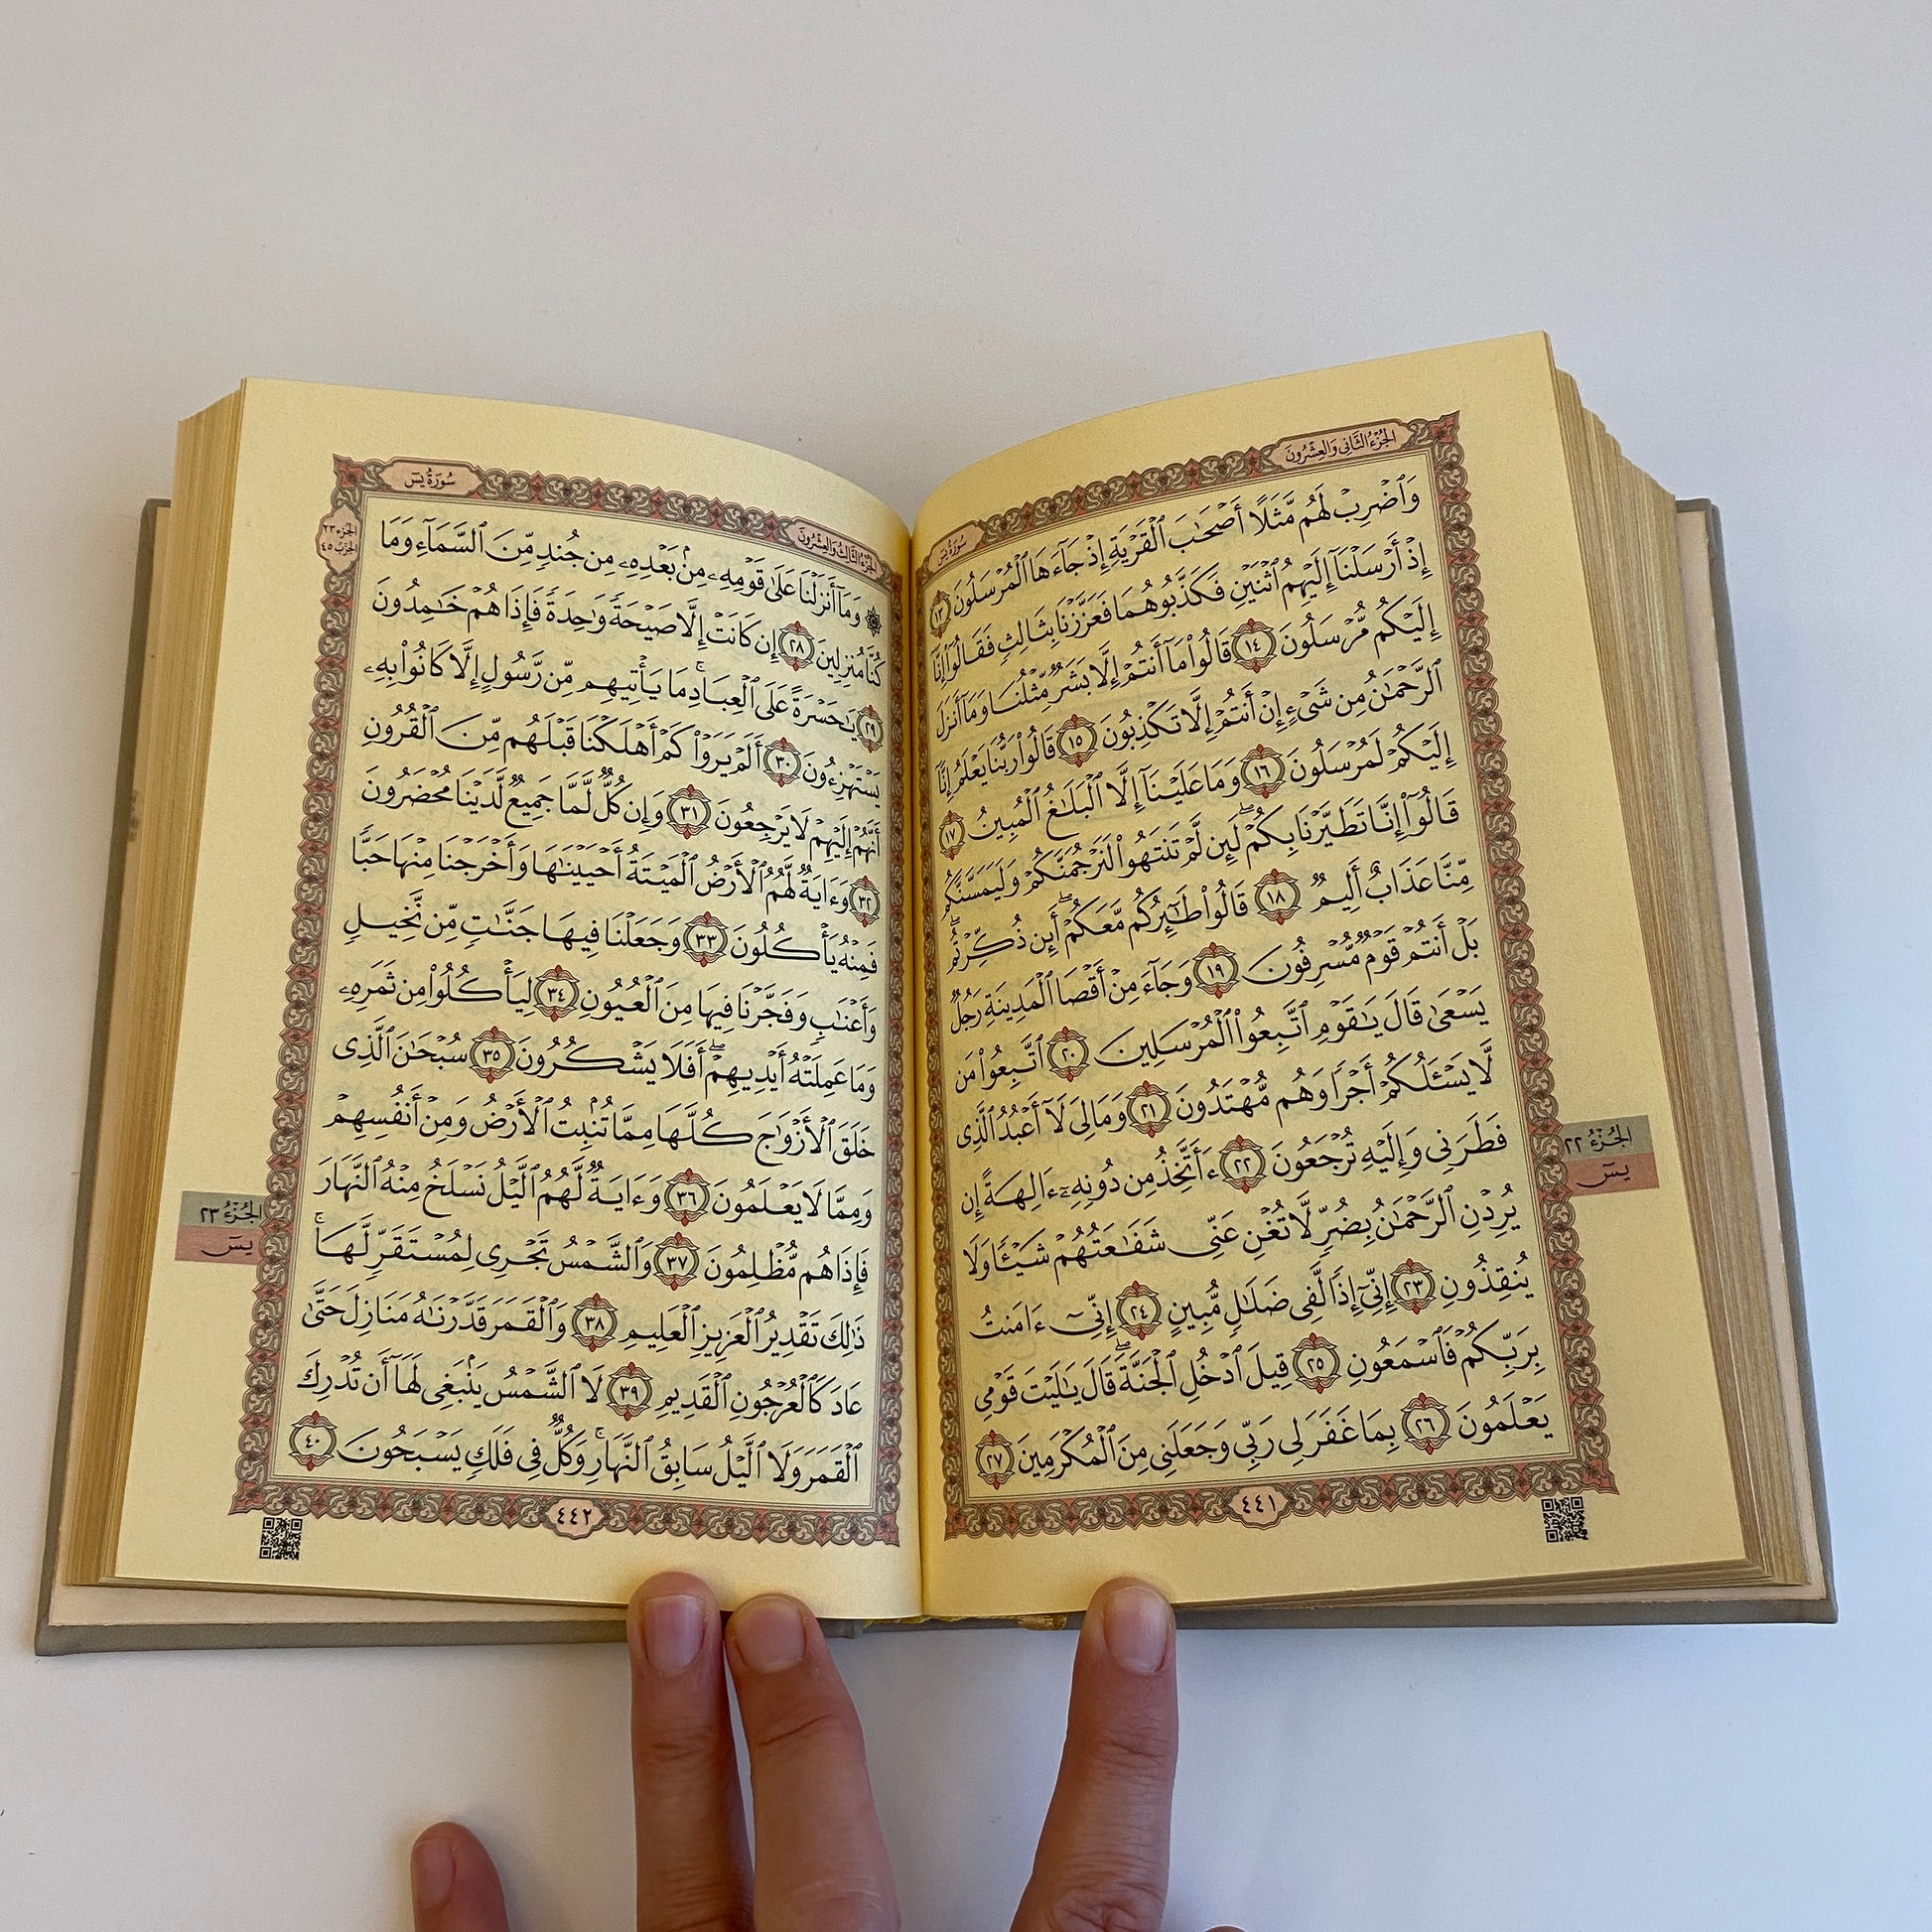 الجُزْءُ الثَّانِي وَالعِشْرُونَ
سُورَةُ يسٓ
وَٱضْرِبْ لَهُم مَّثَلًا أَصْحَٰبَ ٱلْقَرْيَةِ إِذْ جَآءَهَا ٱلْمُرْسَلُونَ ١٣
إِذْ أَرْسَلْنَآ إِلَيْهِمُ ٱثْنَيْنِ فَكَذَّبُوهُمَا فَعَزَّزْنَا بِثَالِثٍ فَقَالُوٓا۟ إِنَّآ
إِلَيْكُم مُّرْسَلُونَ ١٤ قَالُوا۟ مَآ أَنتُمْ إِلَّا بَشَرٌ مِّثْلُنَا وَمَآ أَنزَلَ
ٱلرَّحْمَٰنُ مِن شَىْءٍ إِنْ أَنتُمْ إِلَّا تَكْذِبُونَ ١٥ قَالُوا۟ رَبُّنَا يَعْلَمُ إِنَّآ
إِلَيْكُمْ لَمُرْسَلُونَ ١٦ وَمَا عَلَيْنَآ إِلَّا ٱلْبَلَٰغُ ٱلْمُبِينُ ١٧
قَالُوٓا۟ إِنَّا تَطَيَّرْنَا بِكُمْ ۖ لَئِن لَّمْ تَنتَهُوا۟ لَنَرْجُمَنَّكُمْ وَلَيَمَسَّنَّكُم
مِّنَّا عَذَابٌ أَلِيمٌ ١٨ قَالُوا۟ طَٰٓئِرُكُم مَّعَكُمْ ۚ أَئِن ذُكِّرْتُم ۚ
بَلْ أَنتُمْ قَوْمٌ مُّسْرِفُونَ ١٩ وَجَآءَ مِنْ أَقْصَا ٱلْمَدِينَةِ رَجُلٌ
يَسْعَىٰ قَالَ يَٰقَوْمِ ٱتَّبِعُوا۟ ٱلْمُرْسَلِينَ ٢٠ ٱتَّبِعُوا۟ مَن
لَّا يَسْـَٔلُكُمْ أَجْرًا وَهُم مُّهْتَدُونَ ٢١ وَمَا لِىَ لَآ أَعْبُدُ ٱلَّذِى
فَطَرَنِى وَإِلَيْهِ تُرْجَعُونَ ٢٢ ءَأَتَّخِذُ مِن دُونِهِۦٓ ءَالِهَةً إِن
يُرِدْنِ ٱلرَّحْمَٰنُ بِضُرٍّ لَّا تُغْنِ عَنِّى شَفَٰعَتُهُمْ شَيْـًٔا وَلَا
يُنقِذُونِ ٢٣ إِنِّىٓ إِذًا لَّفِى ضَلَٰلٍ مُّبِينٍ ٢٤ إِنِّىٓ ءَامَنتُ
بِرَبِّكُمْ فَٱسْمَعُونِ ٢٥ قِيلَ ٱدْخُلِ ٱلْجَنَّةَ ۖ قَالَ يَٰلَيْتَ قَوْمِى
يَعْلَمُونَ ٢٦ بِمَا غَفَرَ لِى رَبِّى وَجَعَلَنِى مِنَ ٱلْمُكْرَمِينَ ٢٧
٤٤١
الجُزْءُ ٢٢
يسٓ
الجُزْءُ الثَّالِثُ وَالعِشْرُونَ
سُورَةُ يسٓ
الجُزْء ٢٣
الحِزْبُ ٤٥
۞ وَمَآ أَنزَلْنَا عَلَىٰ قَوْمِهِۦ مِنۢ بَعْدِهِۦ مِن جُندٍ مِّنَ ٱلسَّمَآءِ وَمَا
كُنَّا مُنزِلِينَ ٢٨ إِن كَانَتْ إِلَّا صَيْحَةً وَٰحِدَةً فَإِذَا هُمْ خَٰمِدُونَ
٢٩ يَٰحَسْرَةً عَلَى ٱلْعِبَادِ ۚ مَا يَأْتِيهِم مِّن رَّسُولٍ إِلَّا كَانُوا۟ بِهِۦ
يَسْتَهْزِءُونَ ٣٠ أَلَمْ يَرَوْا۟ كَمْ أَهْلَكْنَا قَبْلَهُم مِّنَ ٱلْقُرُونِ
أَنَّهُمْ إِلَيْهِمْ لَا يَرْجِعُونَ ٣١ وَإِن كُلٌّ لَّمَّا جَمِيعٌ لَّدَيْنَا مُحْضَرُونَ
٣٢ وَءَايَةٌ لَّهُمُ ٱلْأَرْضُ ٱلْمَيْتَةُ أَحْيَيْنَٰهَا وَأَخْرَجْنَا مِنْهَا حَبًّا
فَمِنْهُ يَأْكُلُونَ ٣٣ وَجَعَلْنَا فِيهَا جَنَّٰتٍ مِّن نَّخِيلٍ
وَأَعْنَٰبٍ وَفَجَّرْنَا فِيهَا مِنَ ٱلْعُيُونِ ٣٤ لِيَأْكُلُوا۟ مِن ثَمَرِهِۦ
وَمَا عَمِلَتْهُ أَيْدِيهِمْ ۖ أَفَلَا يَشْكُرُونَ ٣٥ سُبْحَٰنَ ٱلَّذِى
خَلَقَ ٱلْأَزْوَٰجَ كُلَّهَا مِمَّا تُنۢبِتُ ٱلْأَرْضُ وَمِنْ أَنفُسِهِمْ
وَمِمَّا لَا يَعْلَمُونَ ٣٦ وَءَايَةٌ لَّهُمُ ٱلَّيْلُ نَسْلَخُ مِنْهُ ٱلنَّهَارَ
فَإِذَا هُم مُّظْلِمُونَ ٣٧ وَٱلشَّمْسُ تَجْرِى لِمُسْتَقَرٍّ لَّهَا ۚ
ذَٰلِكَ تَقْدِيرُ ٱلْعَزِيزِ ٱلْعَلِيمِ ٣٨ وَٱلْقَمَرَ قَدَّرْنَٰهُ مَنَازِلَ حَتَّىٰ
عَادَ كَٱلْعُرْجُونِ ٱلْقَدِيمِ ٣٩ لَا ٱلشَّمْسُ يَنۢبَغِى لَهَآ أَن تُدْرِكَ
ٱلْقَمَرَ وَلَا ٱلَّيْلُ سَابِقُ ٱلنَّهَارِ ۚ وَكُلٌّ فِى فَلَكٍ يَسْبَحُونَ ٤٠
٤٤٢
الجُزْءُ ٢٣
يسٓ